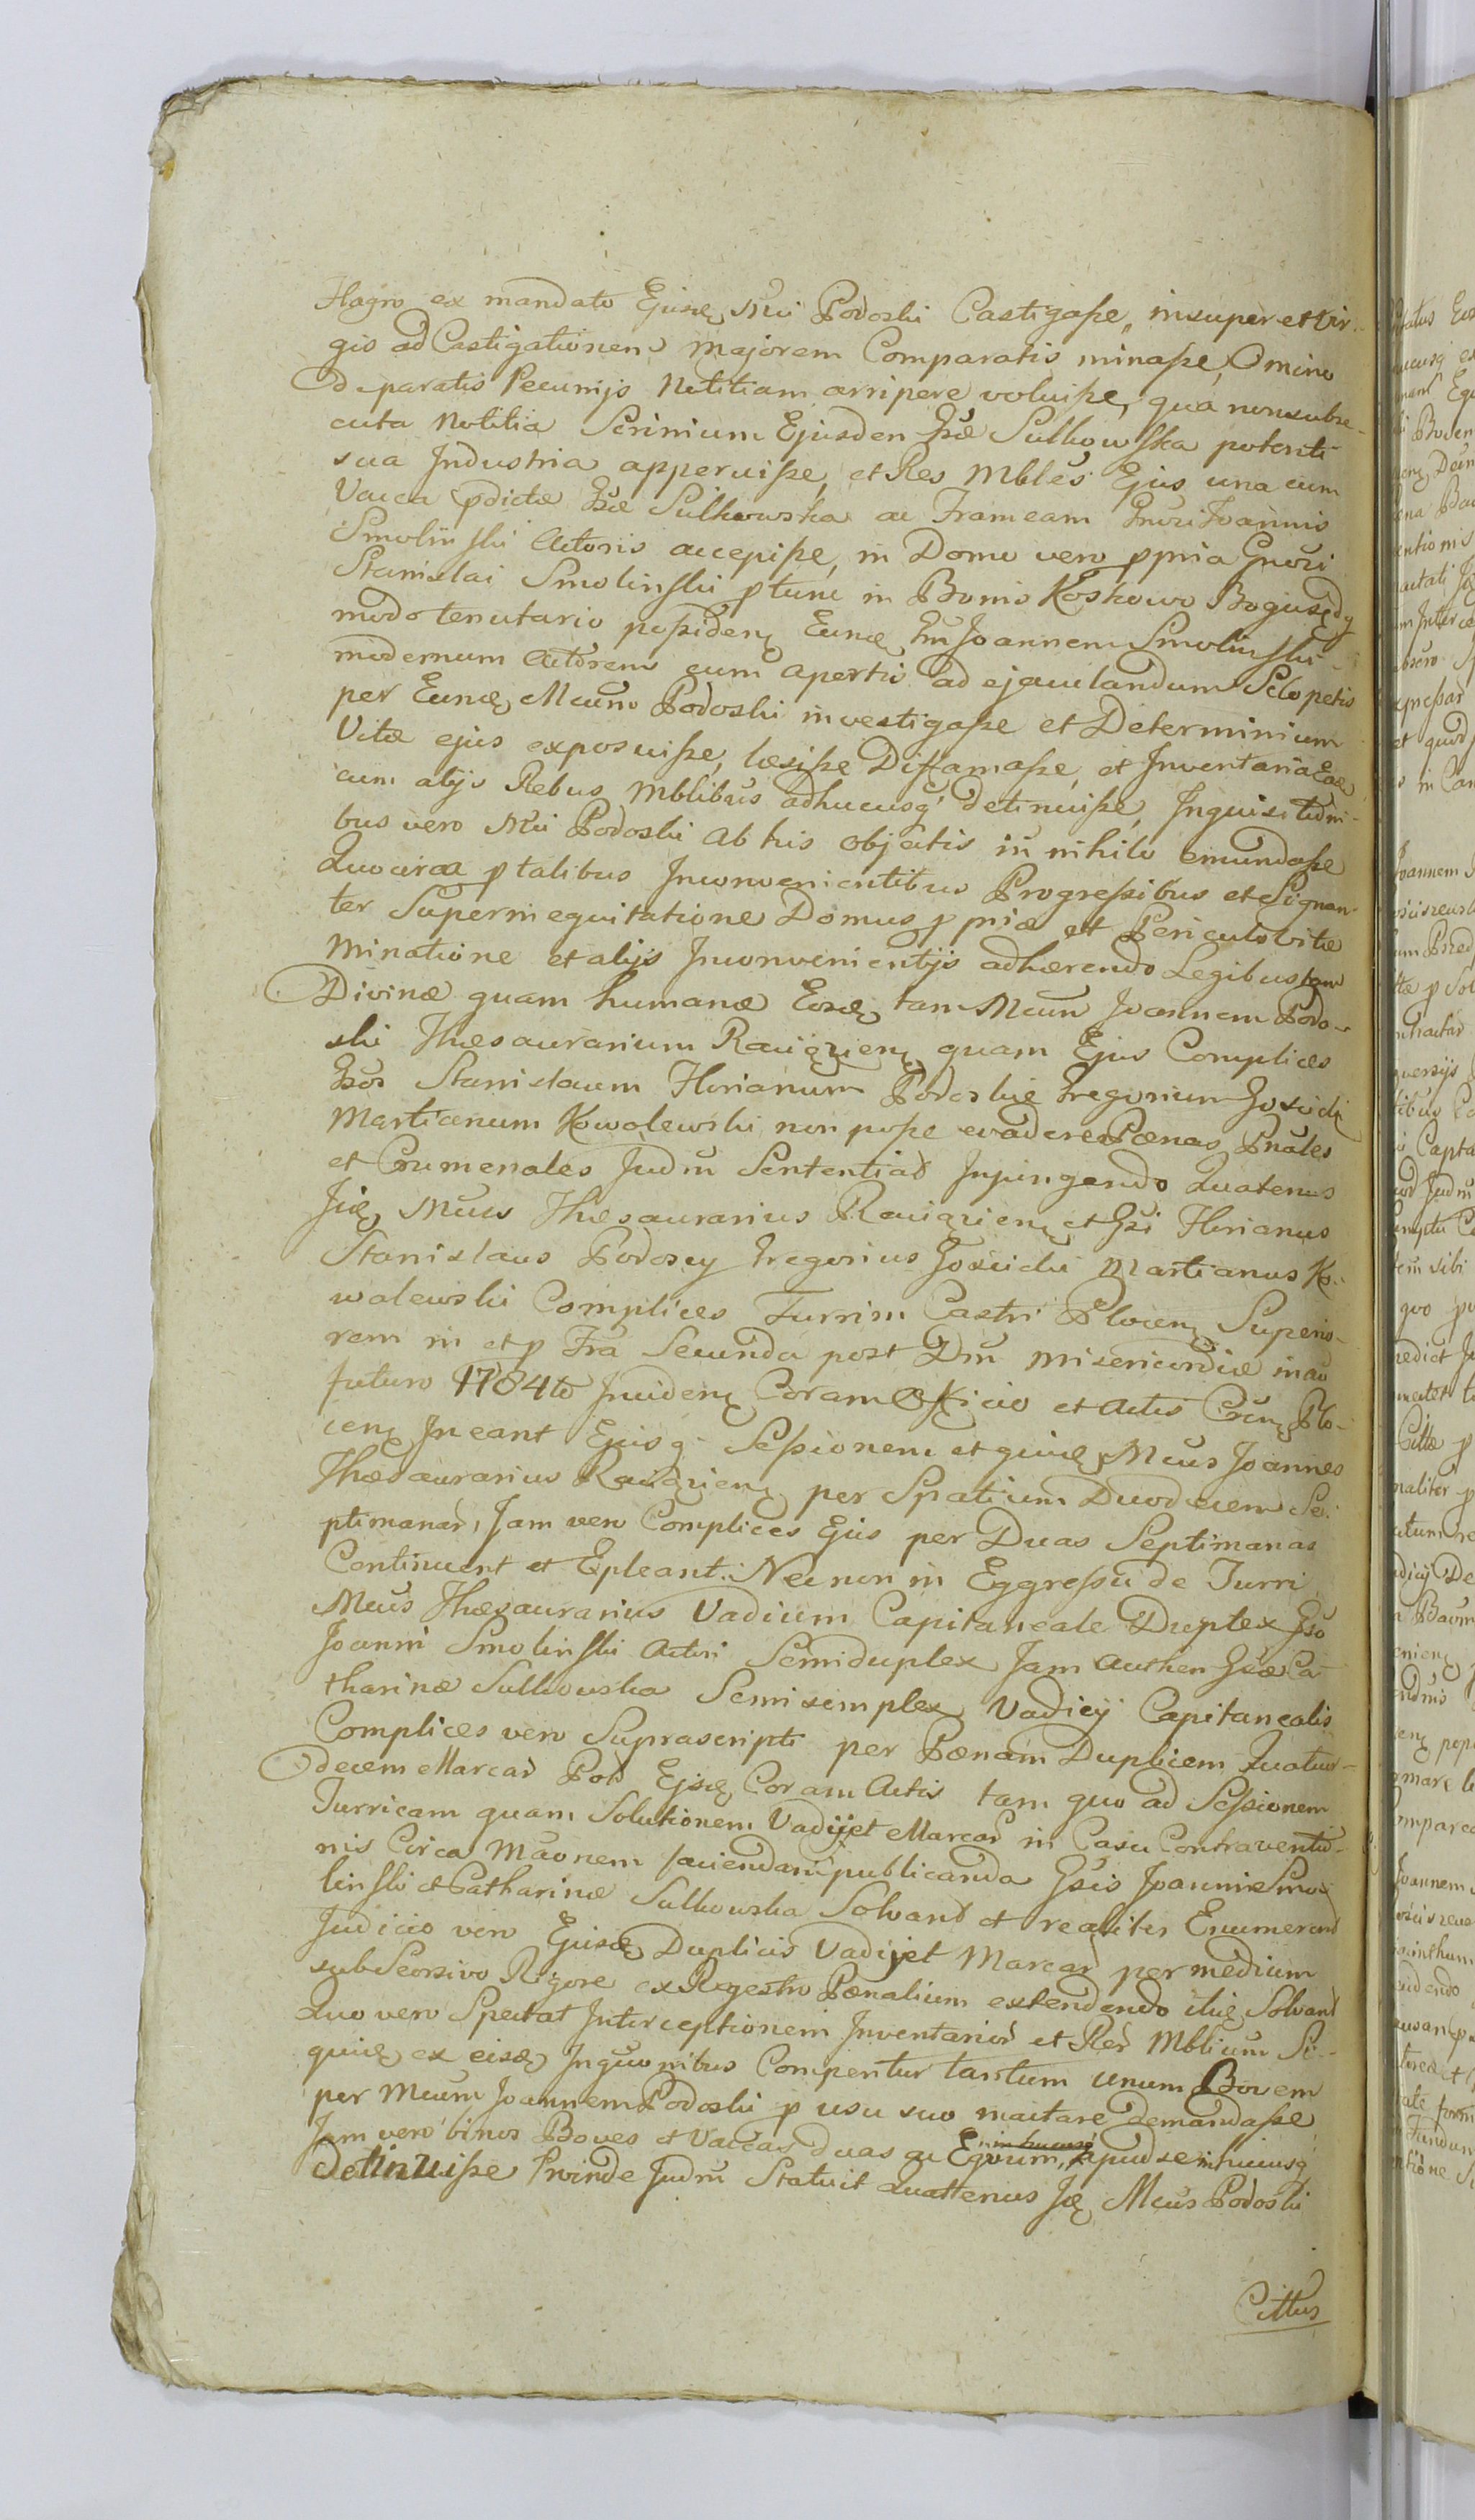 Flagro ex mandato Ejusdę Mci Podoski Castigaße, insuper et Vir-
gis ad Castigationem majorem Comparatis minaße, Omino
de paratis Pecunijs Notitiam arripere voluiße, qua non subse-
cuta Notitia Scrinium Ejusdem Gsæ Sulkowska potenti
sua Industria apperuiße, et Res Mbles Ejus una cum
Vacca pdictæ Gsæ Sulkowska ac Frameam Gnosi Joannis
Smolinski Actoris accepiße, in Domo vero ppria Gnosi
Stanislai Smolinski p tunc in Bonis Koskowo Bogusędy
modo tenutario poßidenę Eundę Gm Joannem Smolinski
modernum Actorem cum apertis ad ejaculandum Sclopetis
per Eundę Mcum Podoski investigaße et Determinium
Vitæ ejus exposuiße, læsiße Diffamaße, et Inventaria Eadę
cum alijs Rebus Mblibus adhucusq detinuiße, Inquisitioni-
bus vero Mci Podoski ab his objectis in nihilo emundaße
Quocirca p talibus Inconvenientibus Progreßibus et Signan-
ter Superinequitatione Domus p priæ et Periculo vitæ
Minatione et alijs Inconvenientijs adhærendo Legibus tam
Divinæ quam humanæ Eosdę tam Mcum Joannem Podo-
ski Thesaurarium Raciązienę quam Ejus Complices
Gsos Stanislaum Florianum Podoskie Gregorium Gosicki
Martianum Kowalewski non poße evadere Pœnas Pnales
et Crumenales Judm Sententiad Inpingendo Quatenus
Jidę Mcus Thesaurarius Raciązienę et Gsi Florianus
Stanislaus Podoscy Gregorius Gosicki Martianus Ko-
walewski Complices Turrim Castri Plocenę Superio-
rem in et p Fra Secunda post Dm Misericordiæ in ao
futuro 1784to Incidenę Coram Officio et Actis Crunę Plo-
cenę Ineant Ejusq Seßionem et quidę Mcus Joannes
Thesaurarius Raciązienę per Spatium Duodecem Se-
ptimanar, Jam vero Complices Ejus per Duas Septimanas
Continuent et Expleant. Nec non in Eggreßu de Turri
Mcus Thesaurarius Vadium Capitaneale Duplex Gso
Joanni Smolinski Actori Semiduplex Jam Authen Gsæ Ca-
tharinæ Sulkowska Semisimplex Vadiiÿ Capitanealis
Complices vero Suprascripti per Pœnam Duplicem Quatuor-
decem Marcar Pol Ejsdę Coram Actis tam quo ad Seßionem
Turricam quam Solutionem Vadij et Marcar in Casu Contraventio-
nis Circa Maonem faciendam publicanda Gsis Joanni Smo-
linski et Catharinæ Sulkowska Solvant et realiter Enumerent
Judicio vero Ejusdę Duplicis Vadij et Marcar per medium
sub Seorsivo Rigore ex Regestro Pœnalium extendendo itidę Solvant
Quo vero Spectat Interceptionem Inventarior et Rer Mblium Si-
quidę ex eisdę Inquonibus Comperitur tantum unum Bovem
per Mcum Joannem Podoski p usu suo mactare demandaße
Jam vero binos Boves et Vaccas duas ac Equum, apud se in hucusq
Detinuiße Proinde Judm Statuit Quattenus Jdę Mcus Podoski
Cittus